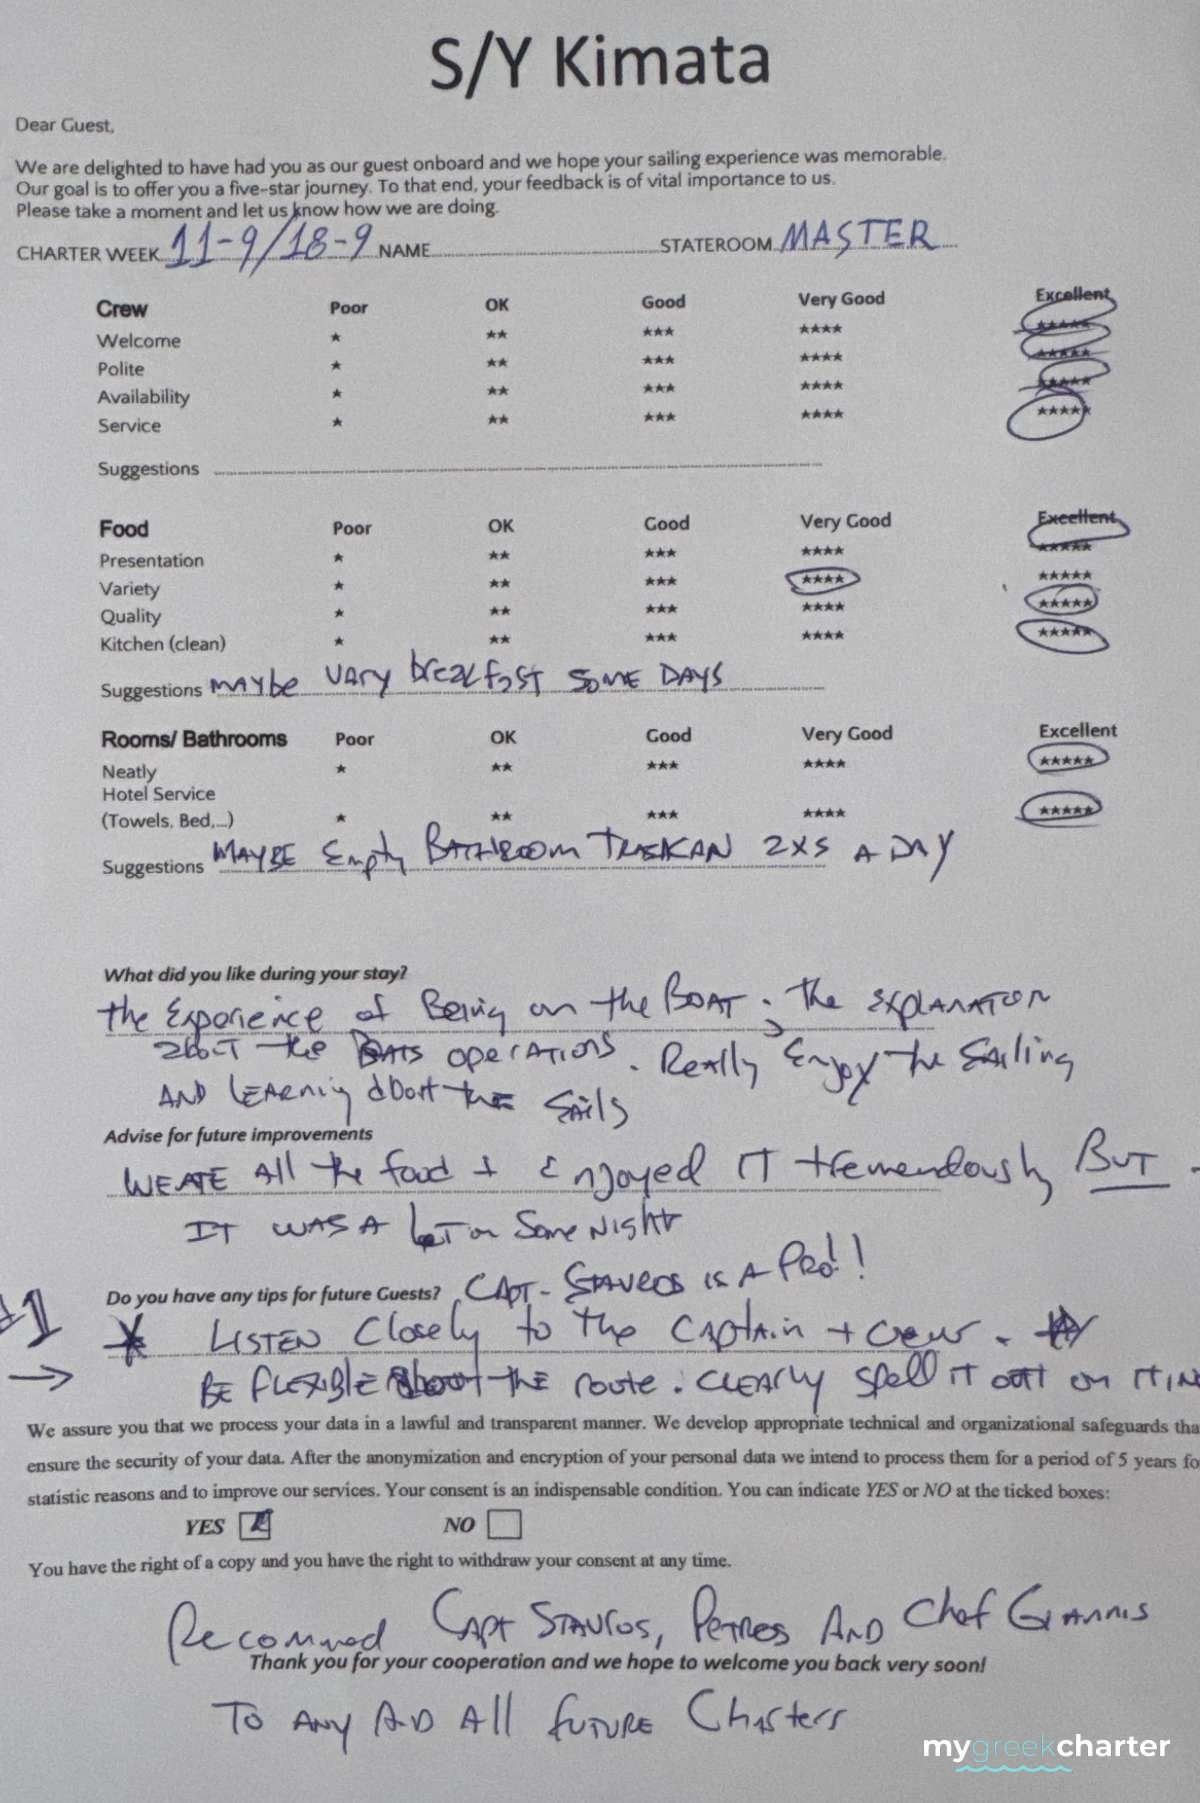 S/Y Kimata
Dear Guest,
We are delighted to have had you as our guest onboard and we hope your sailing experience was memorable.
Our goal is to offer you a five-star journey. To that end, your feedback is of vital importance to us.
Please take a moment and let us know how we are doing.
CHARTER WEEK 11-9/18-9 NAME STATEROOM MASTER
Crew Poor OK Good Very Good Excellent
Welcome ★ ★★ ★★★ ★★★★ ★★★★★
Polite ★ ★★ ★★★ ★★★★ ★★★★★
Availability ★ ★★ ★★★ ★★★★ ★★★★★
Service ★ ★★ ★★★ ★★★★ ★★★★★
Suggestions
Food Poor OK Good Very Good Excellent
Presentation ★ ★★ ★★★ ★★★★ ★★★★★
Variety ★ ★★ ★★★ ★★★★ ★★★★★
Quality ★ ★★ ★★★ ★★★★ ★★★★★
Kitchen (clean) ★ ★★ ★★★ ★★★★ ★★★★★
Suggestions MAYbe VARY breakfast SOME DAYS
Rooms/ Bathrooms Poor OK Good Very Good Excellent
Neatly ★ ★★ ★★★ ★★★★ ★★★★★
Hotel Service
(Towels, Bed,...) ★ ★★ ★★★ ★★★★ ★★★★★
Suggestions MAYBE Empty BATHROOM TRASHCAN 2XS A DAY
What did you like during your stay?
the Experience of Being on the BOAT. The EXPLANATION
about the BOATS OPERATIONS. Really Enjoy the SAILING
AND LEARNING about THE SAILS
Advise for future improvements
WE ATE All the food + Enjoyed IT tremendously BUT -
IT WAS A LOT on Some NIGHT
Do you have any tips for future Guests? CAPT- STAVROS IS A PRO!!
#1 * LISTEN Closely to the CAPTAIN + crew. *
→ BE FLEXIBLE about THE route. CLEARLY SPELL IT OUT ON ITIN
We assure you that we process your data in a lawful and transparent manner. We develop appropriate technical and organizational safeguards tha
ensure the security of your data. After the anonymization and encryption of your personal data we intend to process them for a period of 5 years fo
statistic reasons and to improve our services. Your consent is an indispensable condition. You can indicate YES or NO at the ticked boxes:
YES NO
You have the right of a copy and you have the right to withdraw your consent at any time.
Recommed CAPT STAVROS, PETROS AND Chef GIANNIS
Thank you for your cooperation and we hope to welcome you back very soon!
TO ANY AND All FUTURE Charters
mygreekcharter